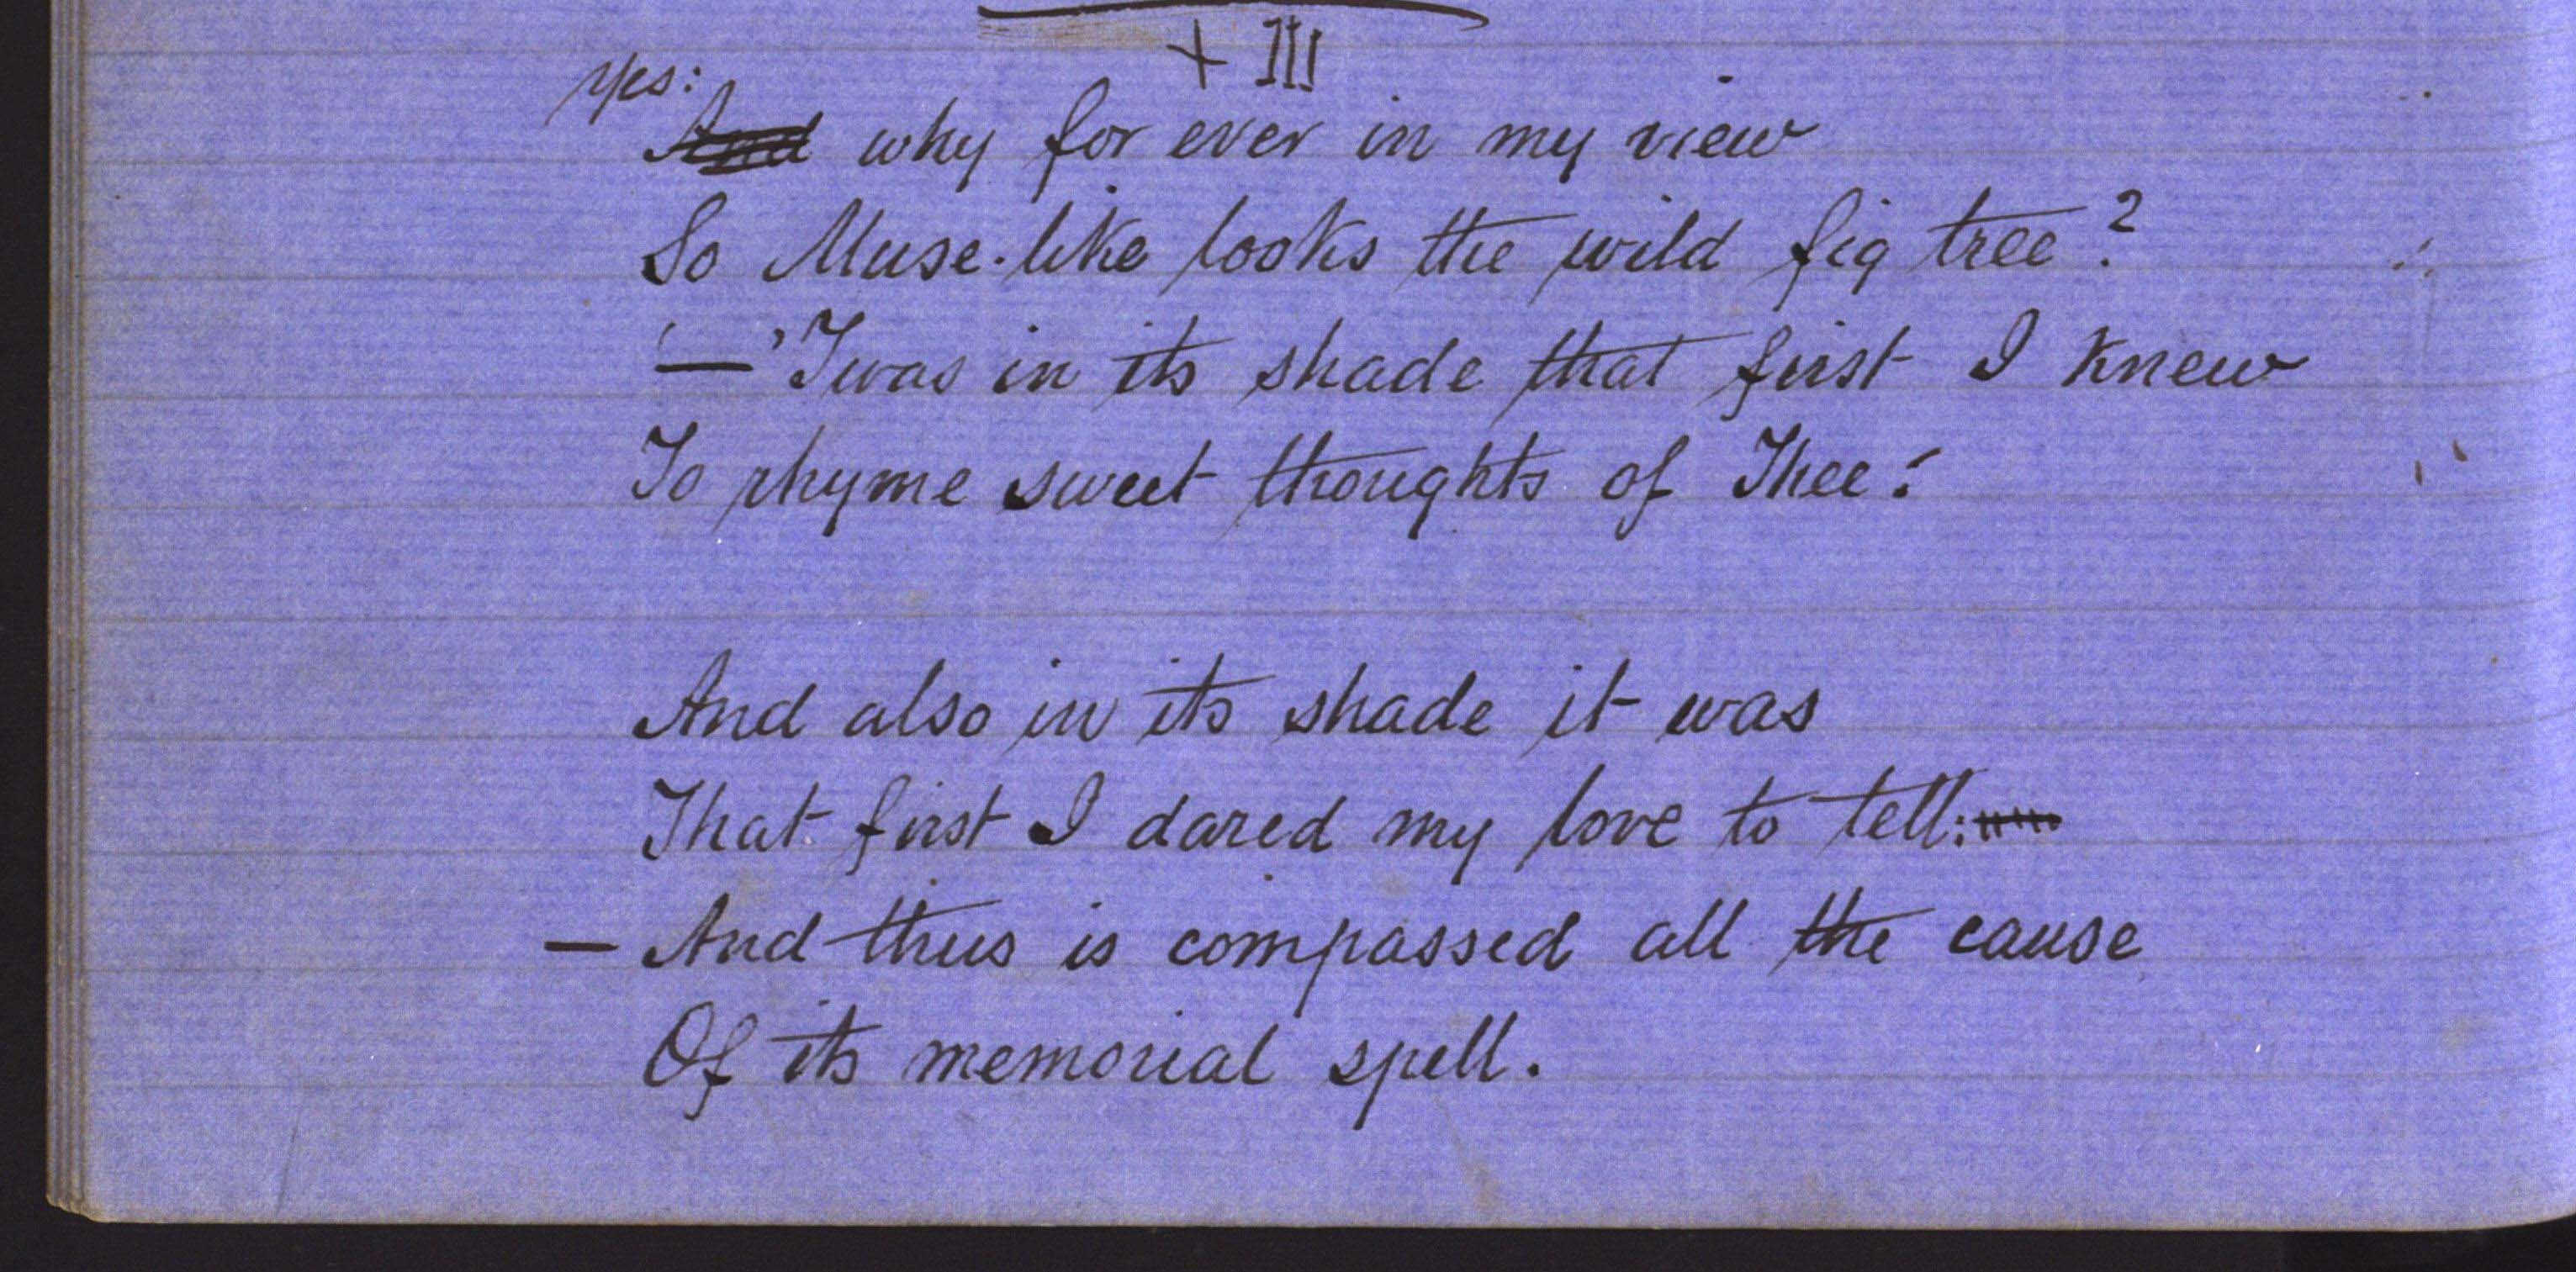 + III
Yes:
And why for ever in my view
So Muse-like looks the wild fig tree?
— 'Twas in its shade that first I knew
To rhyme sweet thoughts of Thee:
And also in its shade it was
That first I dared my love to tell:
— And thus is compassed all the cause
Of its memorial spell.